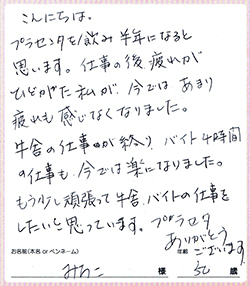 こんにちは。
プラセンタを飲み半年になると
思います。仕事の後、疲れが
ひどかた私が、今では あまり
疲れも感じなくなりました。
牛舎の仕事が終り、バイト4時間
の仕事も、今では楽になりました。
もう少し頑張って牛舎、バイトの仕事を
したいと思っています。プラセタ
ありがとう
ございます。
お名前(本名 or ペンネーム) 年齢
みちこ 様 歳